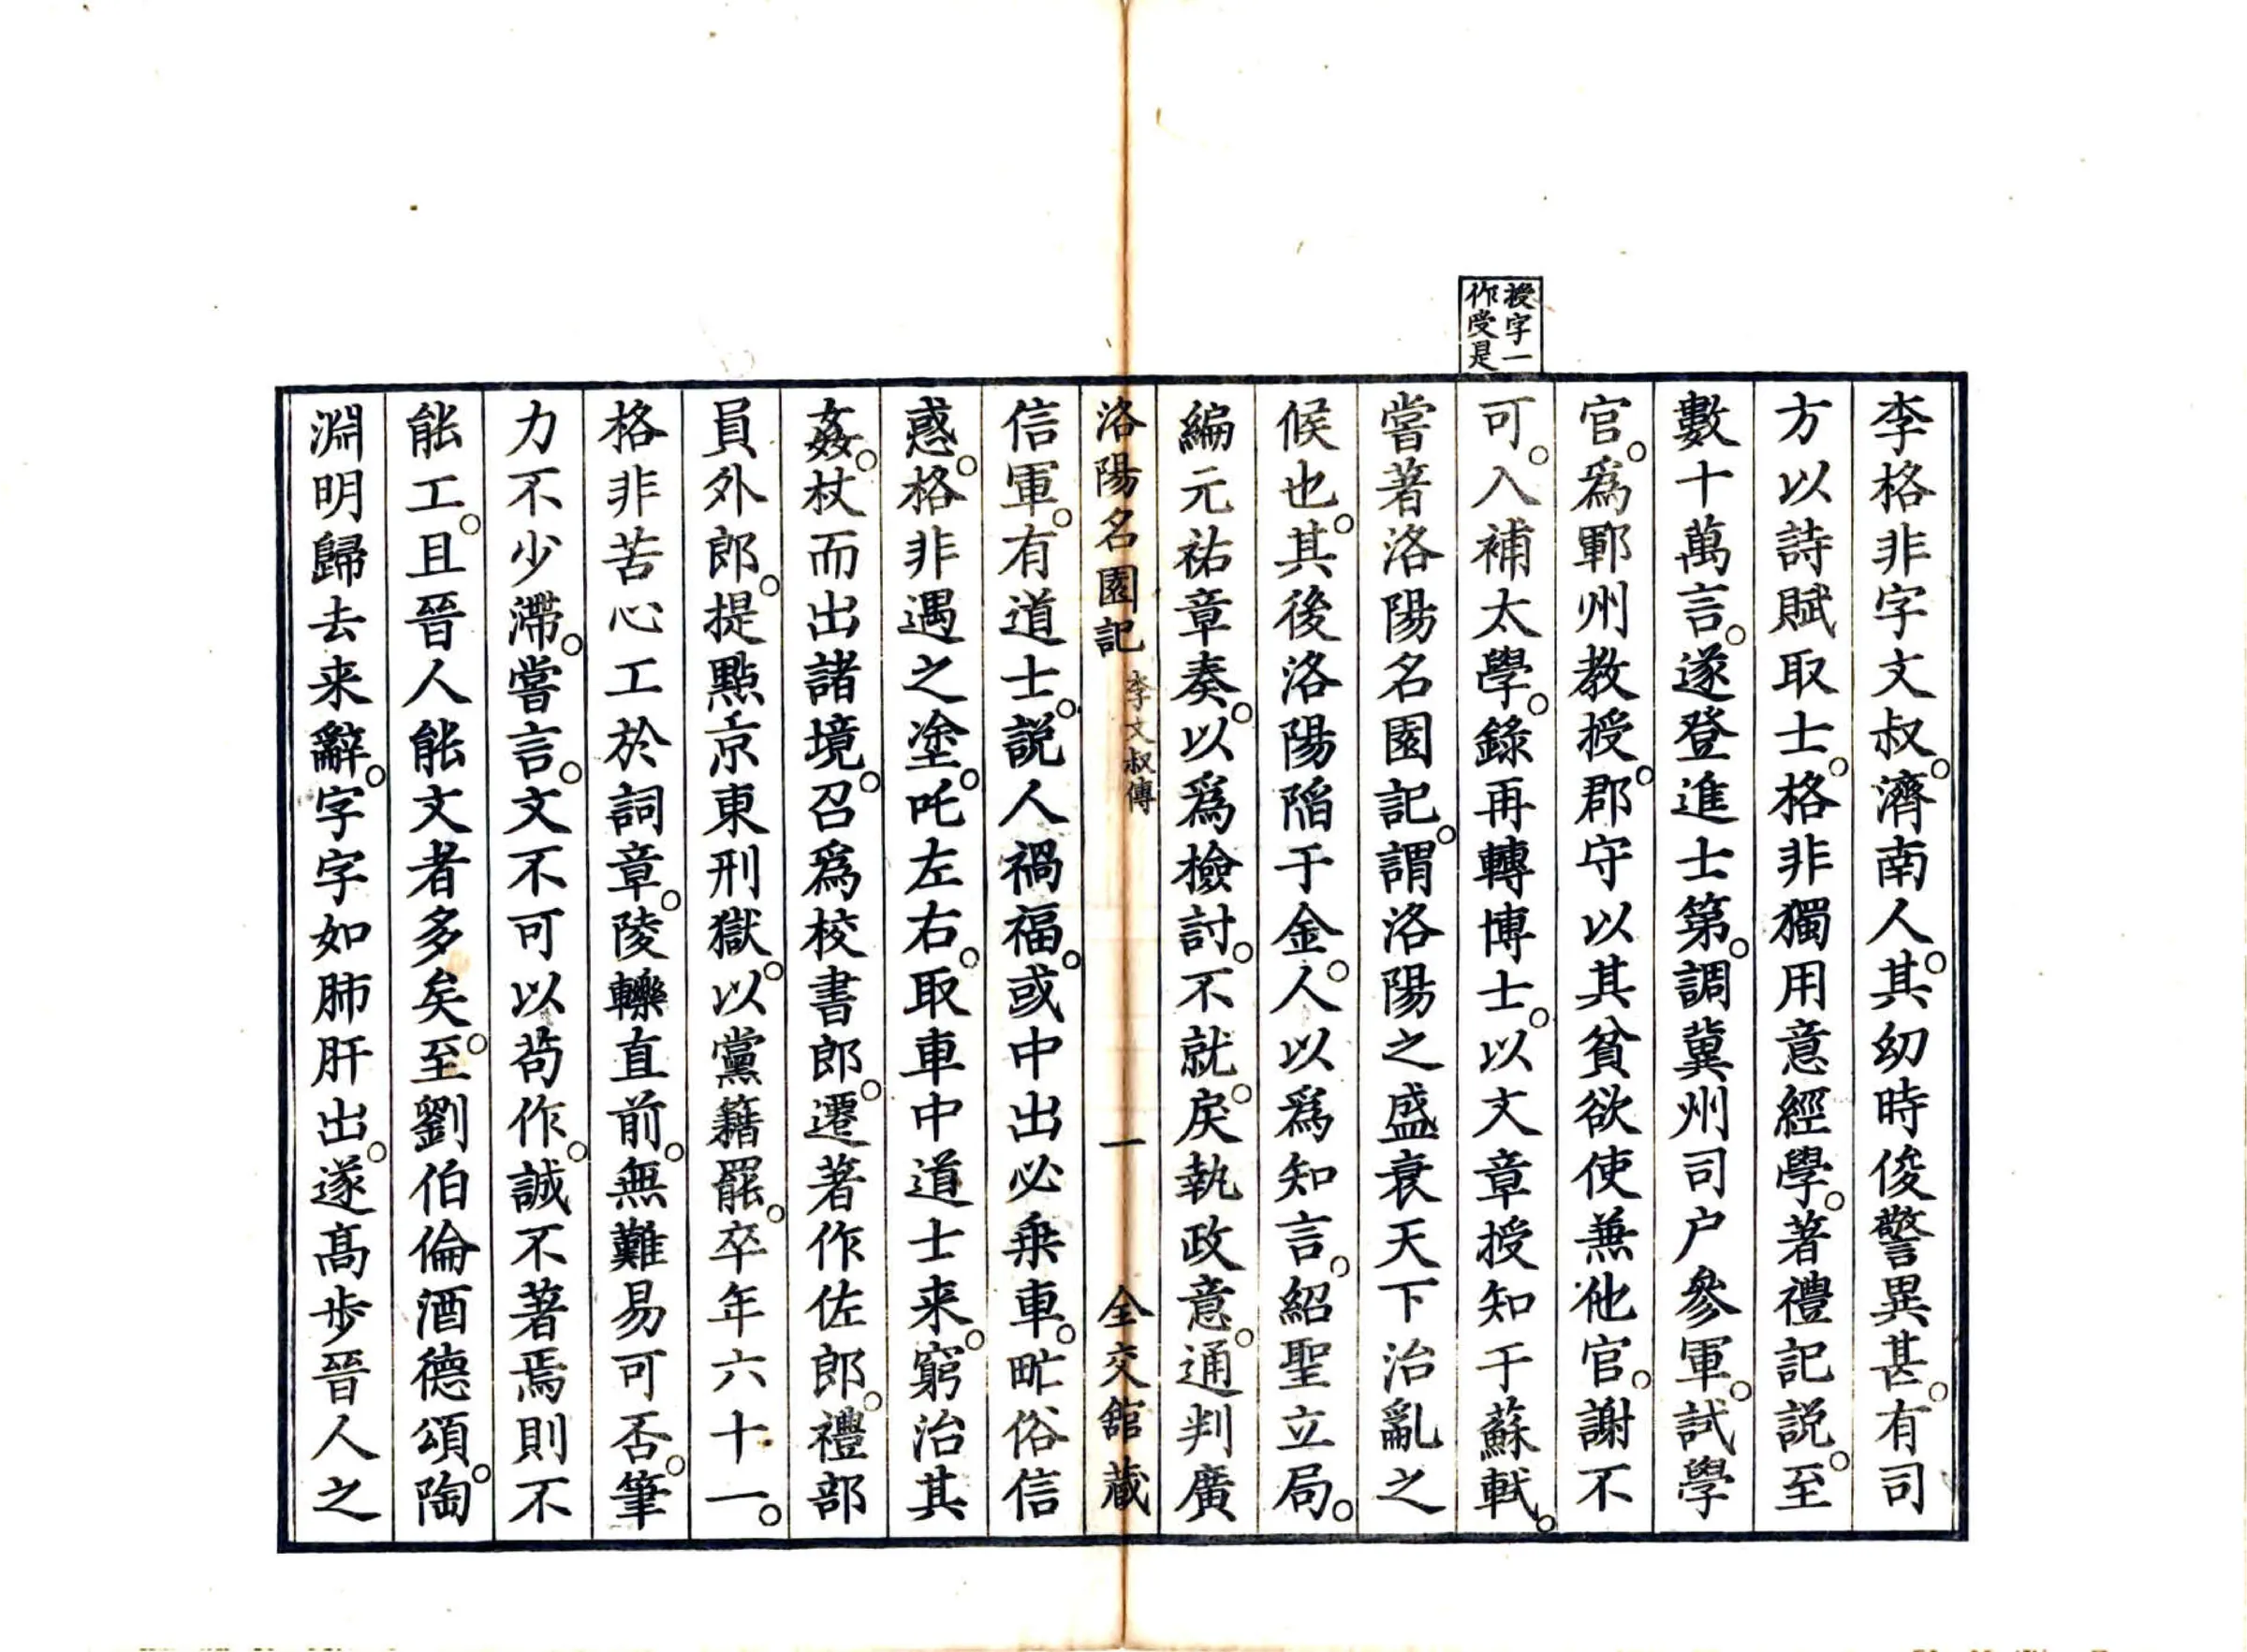 李格非字文叔。濟南人。其幼時俊警異甚。有司
方以詩賦取士。格非獨用意經學。著禮記説。至
數十萬言。遂登進士第。調冀州司户參軍。試學
官。爲鄆州教授。郡守以其貧欲使兼他官。謝不
授字一
作受是
可。入補太學。錄再轉博士。以文章授知于蘇軾。
嘗著洛陽名園記。謂洛陽之盛衰天下治亂之
候也。其後洛陽陷于金。人以爲知言。紹聖立局。
編元祐章奏。以爲檢討。不就。戾執政意。通判廣
洛陽名園記 李文叔傳 一 全交館蔵
信軍。有道士。説人禍福。或中出必乗車。甿俗信
惑。格非遇之塗。叱左右。取車中道士来。窮治其
姦。杖而出諸境。召爲校書郎。遷著作佐郎。禮部
員外郎。提點京東刑獄。以黨籍罷。卒年六十一。
格非苦心工於詞章。陵轢直前。無難易可否。筆
力不少滯。嘗言。文不可以苟作。誠不著焉則不
能工。且晉人能文者多矣。至劉伯倫酒德頌。陶
淵明歸去来辭。字字如肺肝出。遂髙歩晉人之